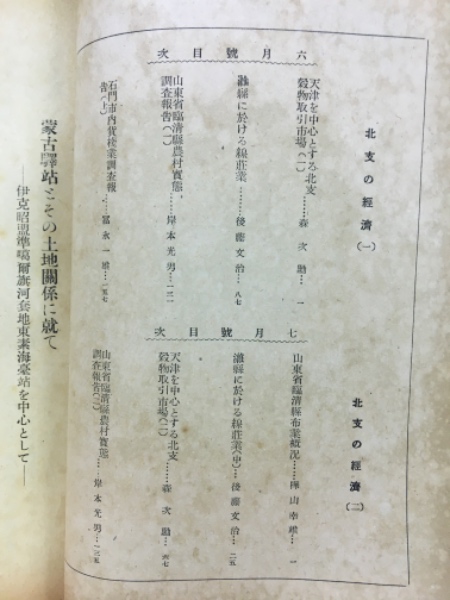 北支の經濟(一)
六月號目次
天津を中心とする北支
穀物取引市場(一)……森次勳…一
濰縣に於ける線莊業……後藤文治…八七
山東省臨清縣農村實態
調査報告(一)……岸本光男…一三一
石門市內貨棧業調査報
告(上)……富永一雄…一五七
北支の經濟(二)
七月號目次
山東省臨清縣布業概況……樺山幸雄…一
濰縣に於ける線莊業(中)…後藤文治…二五
天津を中心とする北支
穀物取引市場(二)……森次勳…六七
山東省臨清縣農村實態
調査報告(二)……岸本光男…一三五
蒙古驛站とその土地關係に就て
―伊克昭盟準噶爾旗河套地東素海臺站を中心として―